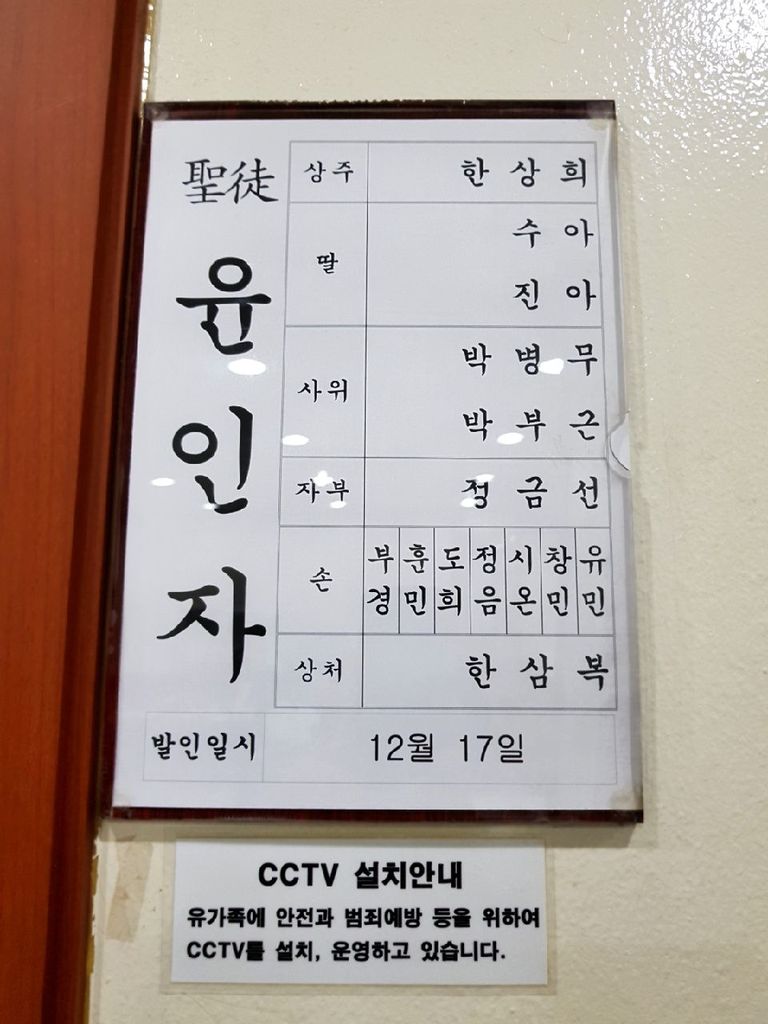 聖徒
윤인자
상주 한상희
딸 수아
진아
사위 박병무
박부근
자부 정금선
손 부경 훈민 도희 정음 시온 창민 유민
상처 한삼복
발인일시 12월 17일
CCTV 설치안내
유가족에 안전과 범죄예방 등을 위하여
CCTV를 설치, 운영하고 있습니다.